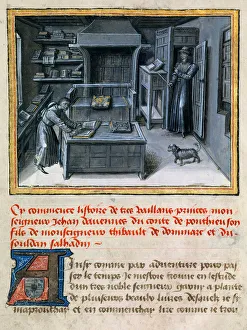 Cy commence listoire de tres vaillans princes mon
seigneur Jehan dauennes du conte de ponthieu son
filz de monseigneur thibault de dommart et du
souldan salhadin
Ainsi comme par aduenture pour pas
ser le temps Je mestoie trouue en lestude
dun tres noble seigneur garny a plante
de plusieurs beaulx liures desquelz je
et en commenchay lire comme le